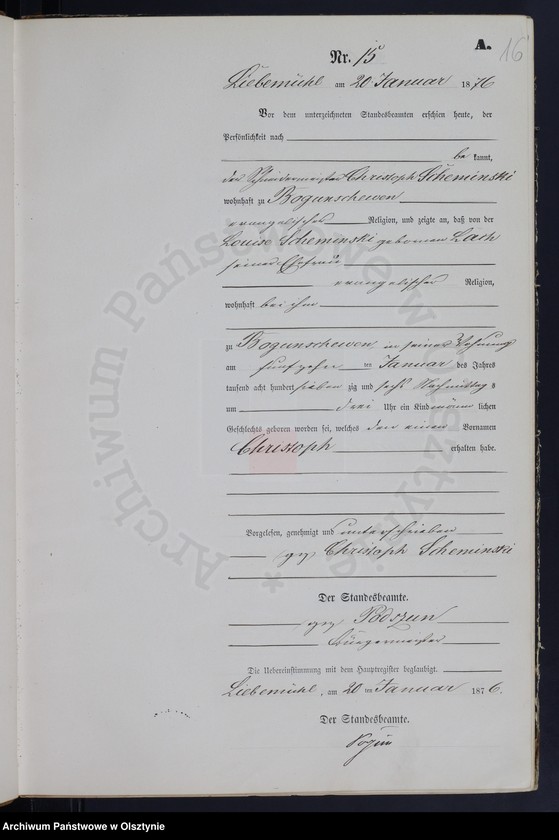 A.
16
Nr. 15
Liebemühl am 20 Januar 1876
Vor dem unterzeichneten Standesbeamten erschien heute, der
Persönlichkeit nach
be kannt,
der Schneidermeister Christoph Scheminski
wohnhaft zu Bogunschewen
evangelischer Religion, und zeigte an, daß von der
Louise Scheminski geborenen Lach
seiner Ehefrau
evangelischer Religion,
wohnhaft bei ihm
zu Bogunschewen in seiner Wohnung
am fünfzehn ten Januar des Jahres
tausend acht hundert sieben zig und sechs Nachmittag s
um drei Uhr ein Kind männ lichen
Geschlechts geboren worden sei, welches den einen Vornamen
Christoph erhalten habe.
Vorgelesen, genehmigt und unterschrieben
gez Christoph Scheminski
Der Standesbeamte.
gez Podszun
Bürgermeister
Die Uebereinstimmung mit dem Hauptregister beglaubigt.
Liebemühl, am 20 ten Januar 1876.
Der Standesbeamte.
Archiwum Państwowe w Olsztynie *
Archiwum Państwowe w Olsztynie